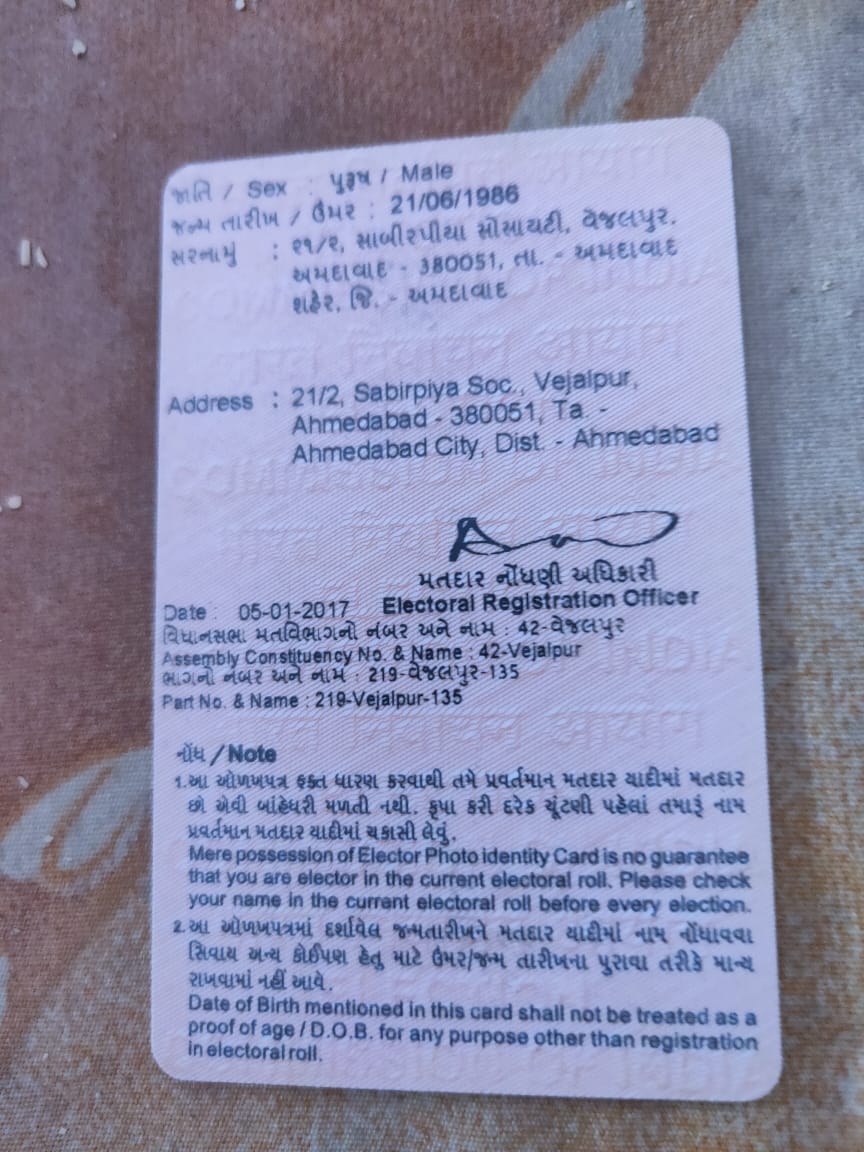 જાતિ / Sex : પુરૂષ / Male
જન્મ તારીખ / ઉંમર : 21/06/1986
સરનામુ : ૨૧/૨, સાબીરપીયા સોસાયટી, વેજલપુર.
અમદાવાદ - 380051, તા. - અમદાવાદ
શહેર, જિ. - અમદાવાદ
Address : 21/2, Sabirpiya Soc., Vejalpur,
Ahmedabad - 380051, Ta. -
Ahmedabad City, Dist. - Ahmedabad
મતદાર નોંધણી અધિકારી
Date : 05-01-2017 Electoral Registration Officer
વિધાનસભા મતવિભાગનો નંબર અને નામ : 42-વેજલપુર
Assembly Constituency No. & Name : 42-Vejalpur
ભાગનો નંબર અને નામ : 219-વેજલપુર-135
Part No. & Name : 219-Vejalpur-135
નોંધ / Note
1. આ ઓળખપત્ર ફક્ત ધારણ કરવાથી તમે પ્રવર્તમાન મતદાર યાદીમાં મતદાર
છો એવી બાંહેધરી મળતી નથી. કૃપા કરી દરેક ચૂંટણી પહેલાં તમારૂં નામ
પ્રવર્તમાન મતદાર યાદીમાં ચકાસી લેવું.
Mere possession of Elector Photo identity Card is no guarantee
that you are elector in the current electoral roll. Please check
your name in the current electoral roll before every election.
2. આ ઓળખપત્રમાં દર્શાવેલ જન્મતારીખને મતદાર યાદીમાં નામ નોંધાવવા
સિવાય અન્ય કોઈપણ હેતુ માટે ઉંમર/જન્મ તારીખના પુરાવા તરીકે માન્ય
રાખવામાં નહીં આવે.
Date of Birth mentioned in this card shall not be treated as a
proof of age / D.O.B. for any purpose other than registration
in electoral roll.